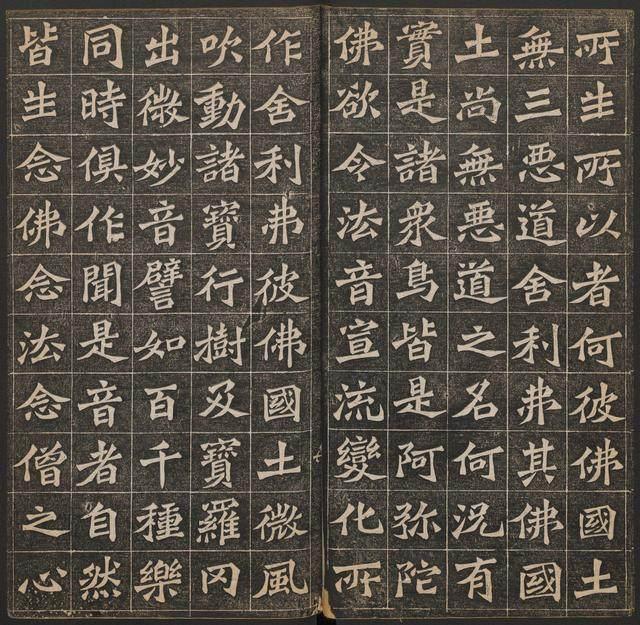 所生所以者何彼佛國土
無三惡道舍利弗其佛國
土尚無惡道之名何況有
實是諸衆鳥皆是阿弥陀
佛欲令法音宣流變化所
作舍利弗彼佛國土微風
吹動諸寶行樹及寶羅冈
出微妙音譬如百千種樂
同時俱作聞是音者自然
皆生念佛念法念僧之心